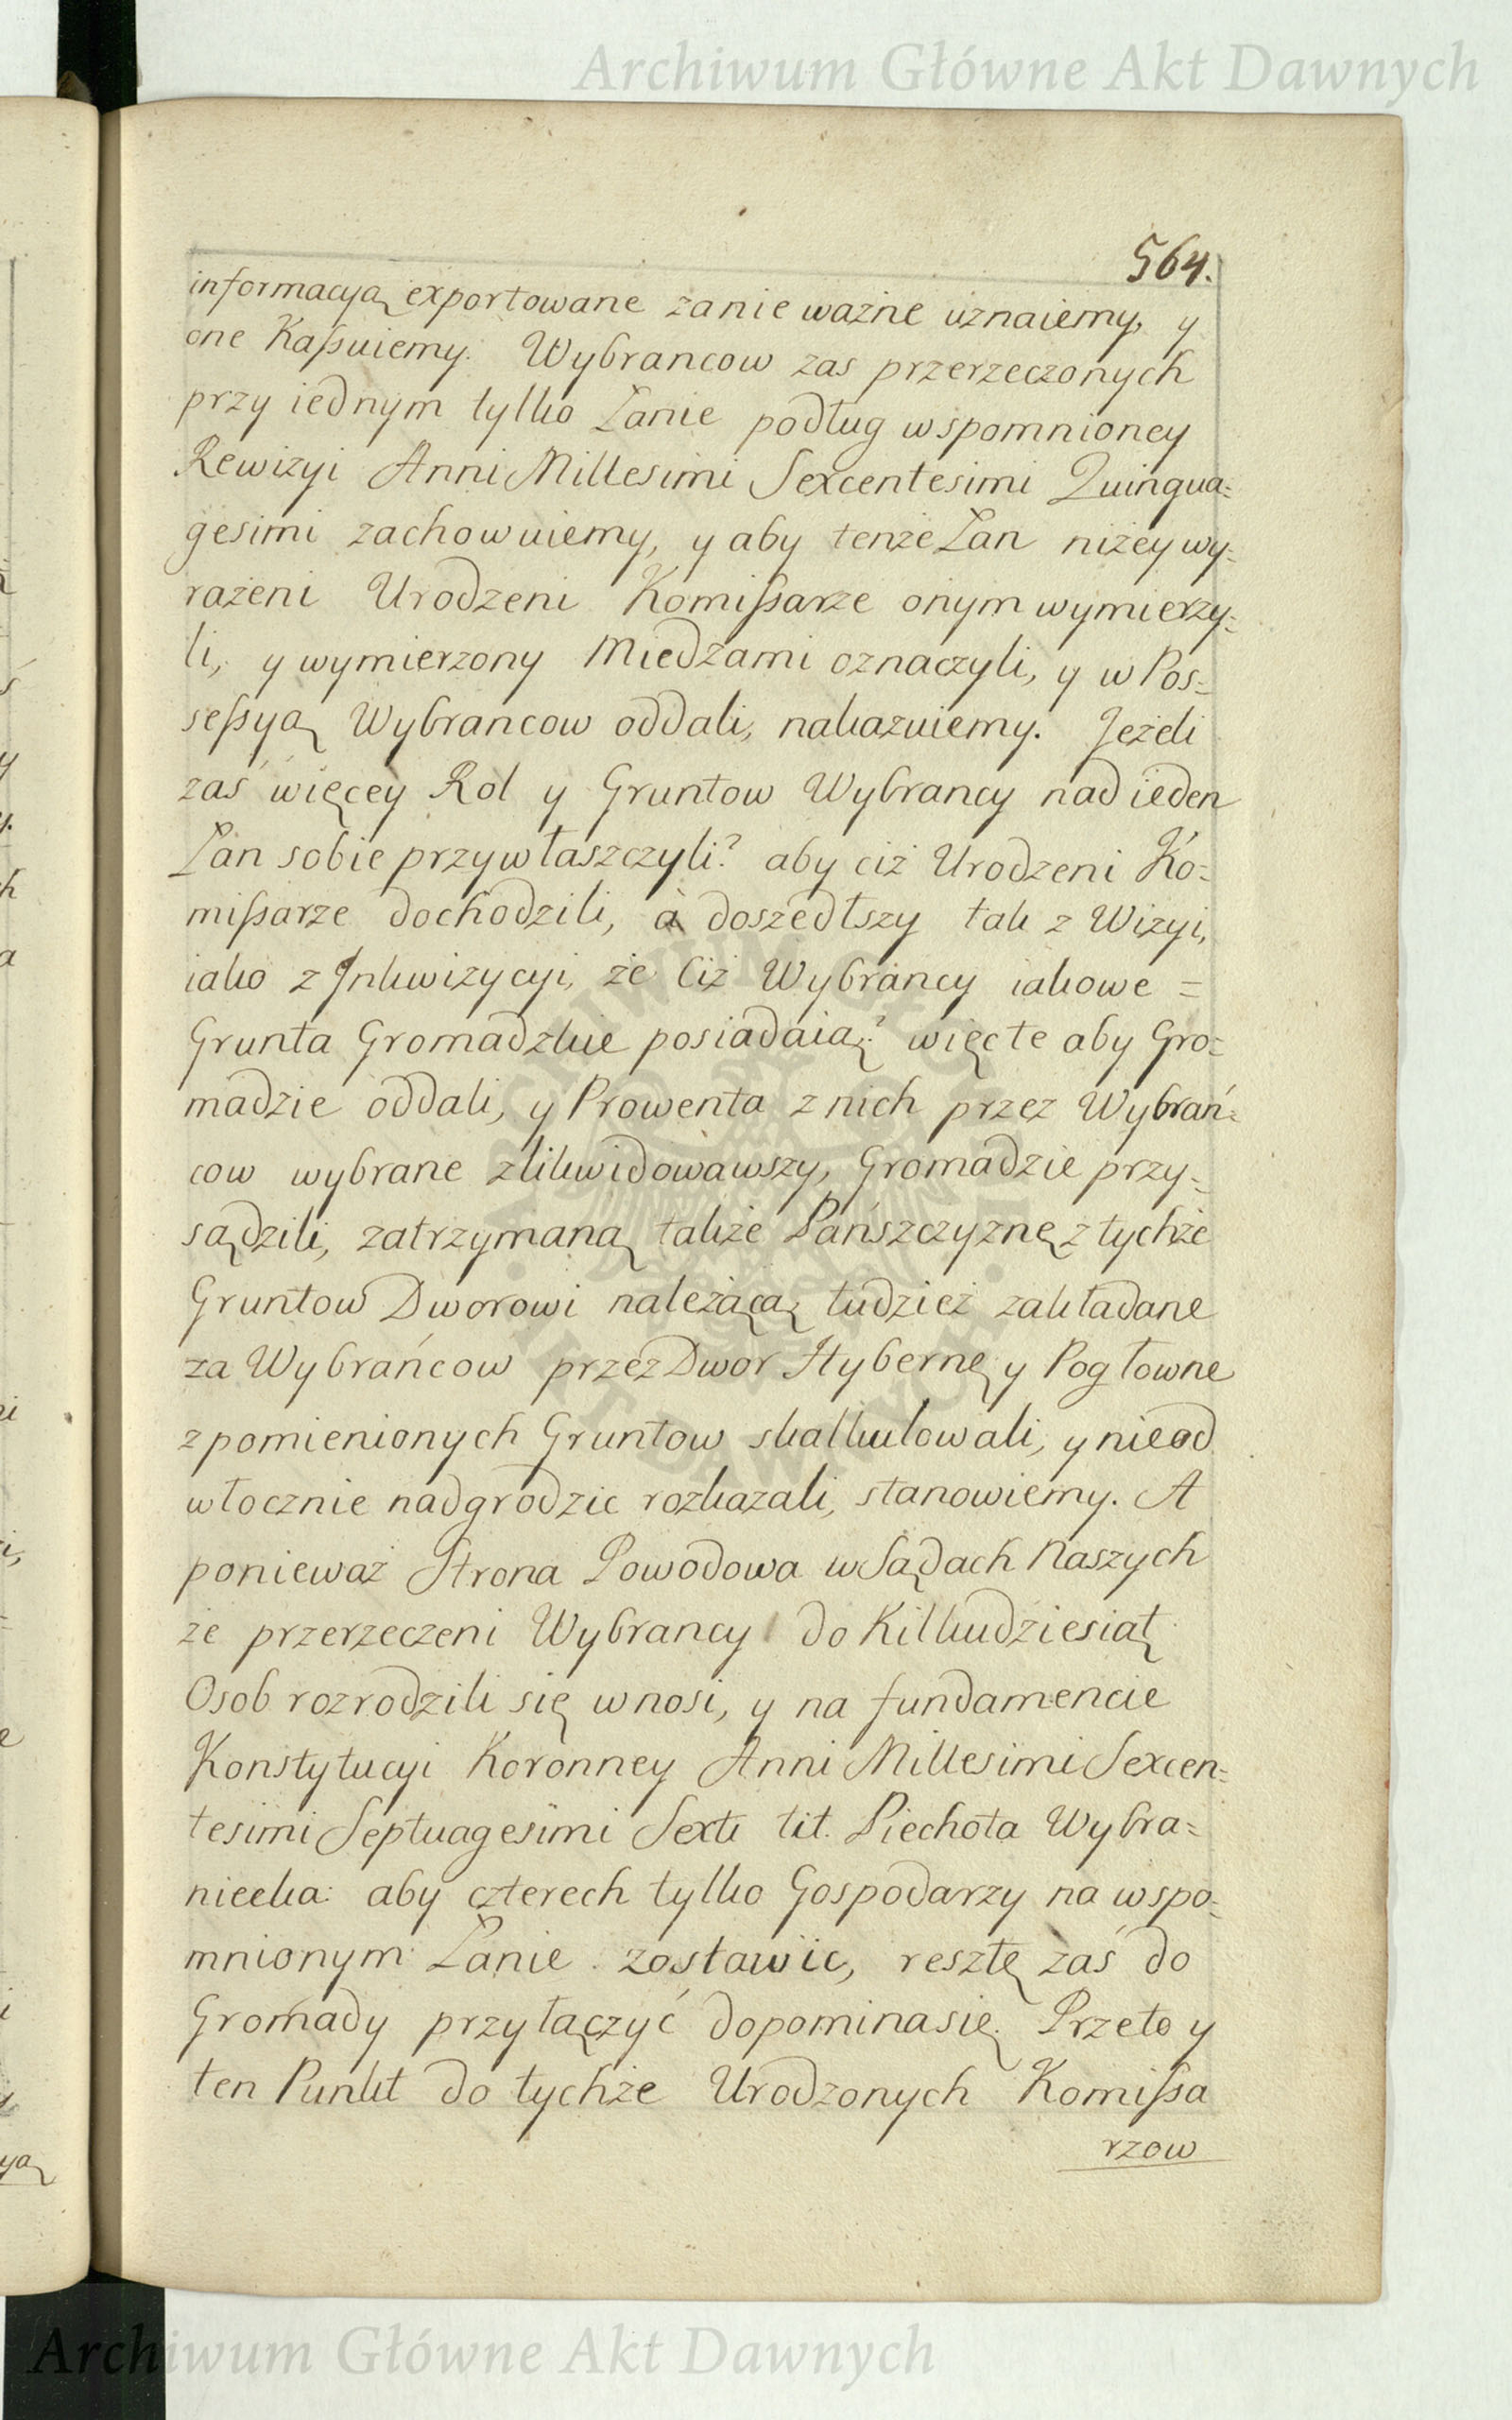 Archiwum Główne Akt Dawnych
564.
informacyą exportowane zanie ważne uznaiemy, y
one Kaßuiemy. Wybrancow zas przerzeczonych
przy iednym tylko Łanie podług wspomnioney
Rewizyi Anni Millesimi Sexcentesimi Quinqua=
gesimi zachowuiemy, y aby tenże Łan niżey wy=
rażeni Urodzeni Komißarze onym wymierzy=
li, y wymierzony Miedzami oznaczyli, y w Pos=
seßyą Wybrancow oddali, nakazuiemy. Jeżeli
zaś więcey Rol y Gruntow Wybrancy nad ieden
Łan sobie przywłaszczyli? aby ciż Urodzeni Ko=
mißarze dochodzili, à doszedłszy tak z Wizyi,
iako z Inkwizycyi, że Ciż Wybrancy iakowe =
Grunta Gromadzkie posiadaią? więc te aby Gro=
madzie oddali, y Prowenta z nich przez Wybrań=
cow wybrane zlikwidowawszy, Gromadzie przy=
sądzili, zatrzymaną także Pańszczyznę z tychże
Gruntow Dworowi należącą, tudzież zakładane
za Wybrańcow przez Dwor Hybernę y Pogłowne
z pomienionych Gruntow skalkulowali, y nieod
włocznie nadgrodzic rozkazali, stanowiemy. A
ponieważ Strona Powodowa w Sądach Naszych
że przerzeczeni Wybrancy do Kilkudziesiąt
Osob rozrodzili się wnosi, y na fundamencie
Konstytucyi Koronney Anni Millesimi Sexcen=
tesimi Septuagesimi Sexti tit. Piechota Wybra=
niecka: aby czterech tylko Gospodarzy na wspo=
mnionym Łanie zostawic, resztę zaś do
Gromady przyłączyć dopomina się. Przeto y
ten Punkt do tychże Urodzonych Komißa
rzow
Archiwum Główne Akt Dawnych